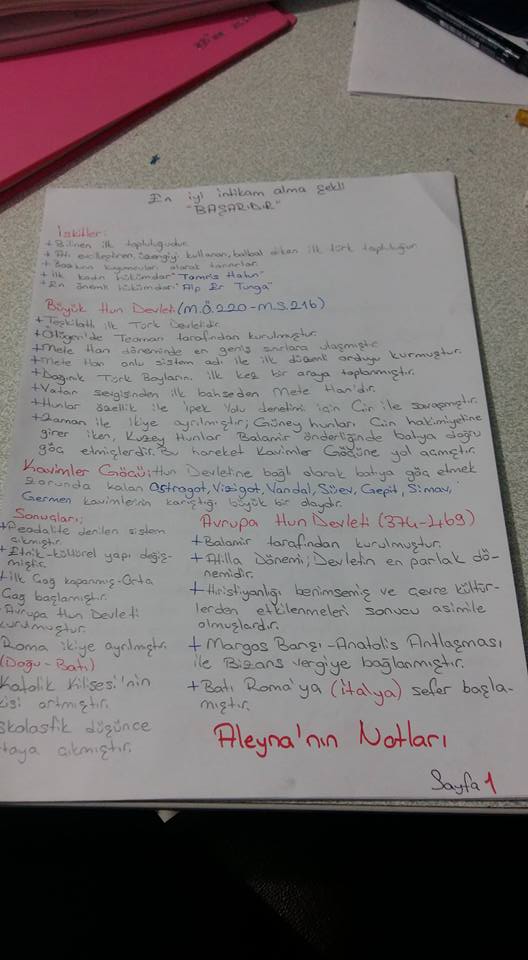 En iyi intikam alma şekli
"BAŞARIDIR"
İskitler:
+ Bilinen ilk topluluğudur.
+ Atı evcilleştiren, üzengiyi kullanan, balbal diken ilk türk topluluğu
+ Bozkırın kuyumcuları olarak tanınırlar.
+ İlk kadın hükümdar "Tomris Hatun"
+ En önemli hükümdarı "Alp Er Tunga"
Büyük Hun Devleti (M.Ö.220-M.S.216)
+ Teşkilatlı ilk Türk Devletidir.
+ Ötügen'de Teoman tarafından kurulmuştur.
+ Mete Han döneminde en geniş sınırlara ulaşmıştır.
+ Mete Han onlu sistem adı ile ilk düzenli orduyu kurmuştur.
+ Dağınık Türk Boylarını ilk kez bir araya toplanmıştır.
+ Vatan sevgisinden ilk bahseden Mete Han'dır.
+ Hunlar özellik ile İpek Yolu denetimi için Çin ile savaşmıştır.
+ Zaman ile ikiye ayrılmıştır; Güney hunları Çin hakimiyetine
girer iken, Kuzey Hunlar Balamir önderliğinde batıya doğru
göç etmişlerdir. Bu hareket Kavimler Göçüne yol açmıştır.
Kavimler Göçü: Hun Devletine bağlı olarak batıya göç etmek
zorunda kalan Ostrogot, Vizigot, Vandal, Süev, Gepit, Simav,
Germen kavimlerinin karıştığı büyük bir olaydır.
Sonuçları;
+ Feodalite denilen sistem
çıkmıştır.
+ Etnik-kültürel yapı değiş-
miştir.
+ İlk Çağ kapanmış-Orta
Çağ başlamıştır.
Avrupa Hun Devleti
kurulmuştur.
Roma ikiye ayrılmıştır.
(Doğu-Batı)
Katolik Kilisesi'nin
artmıştır.
skolastik düşünce
çıkmıştır.
Avrupa Hun Devleti (374-469)
+ Balamir tarafından kurulmuştur.
+ Atilla Dönemi; Devletin en parlak dö-
nemidir.
+ Hıristiyanlığı benimsemiş ve çevre kültür-
lerden etkilenmeleri sonucu asimile
olmuşlardır.
+ Margos Barışı-Anatolis Antlaşması
ile Bizans vergiye bağlanmıştır.
+ Batı Roma'ya (İtalya) sefer başla-
mıştır.
Aleyna'nın Notları
Sayfa 1